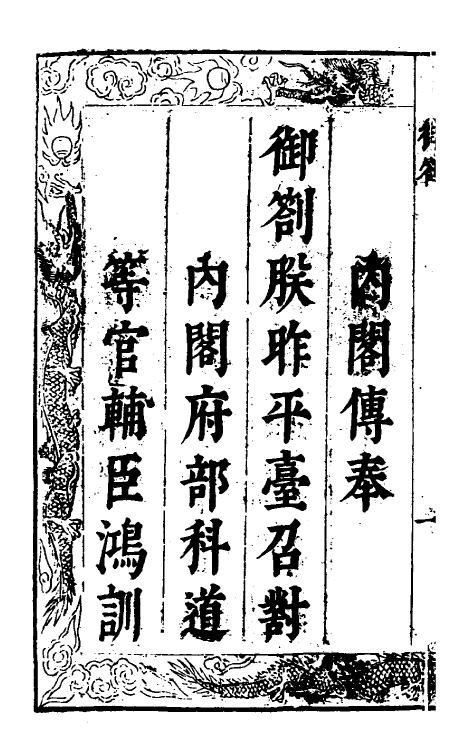 內閣傳奉
御劄朕昨平臺召對
內閣府部科道
等官輔臣鴻訓